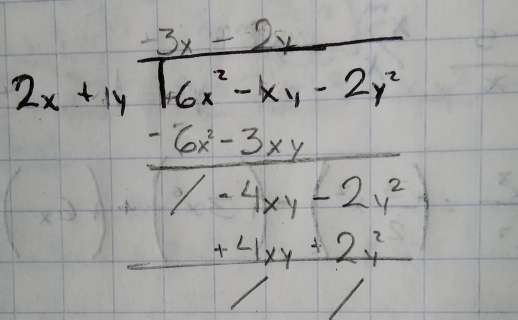 -3x - 2y
2x + 1y | 6x² - 1xy - 2y²
- 6x² - 3xy
/ - 4xy - 2y²
+ 4xy + 2y²
/ /